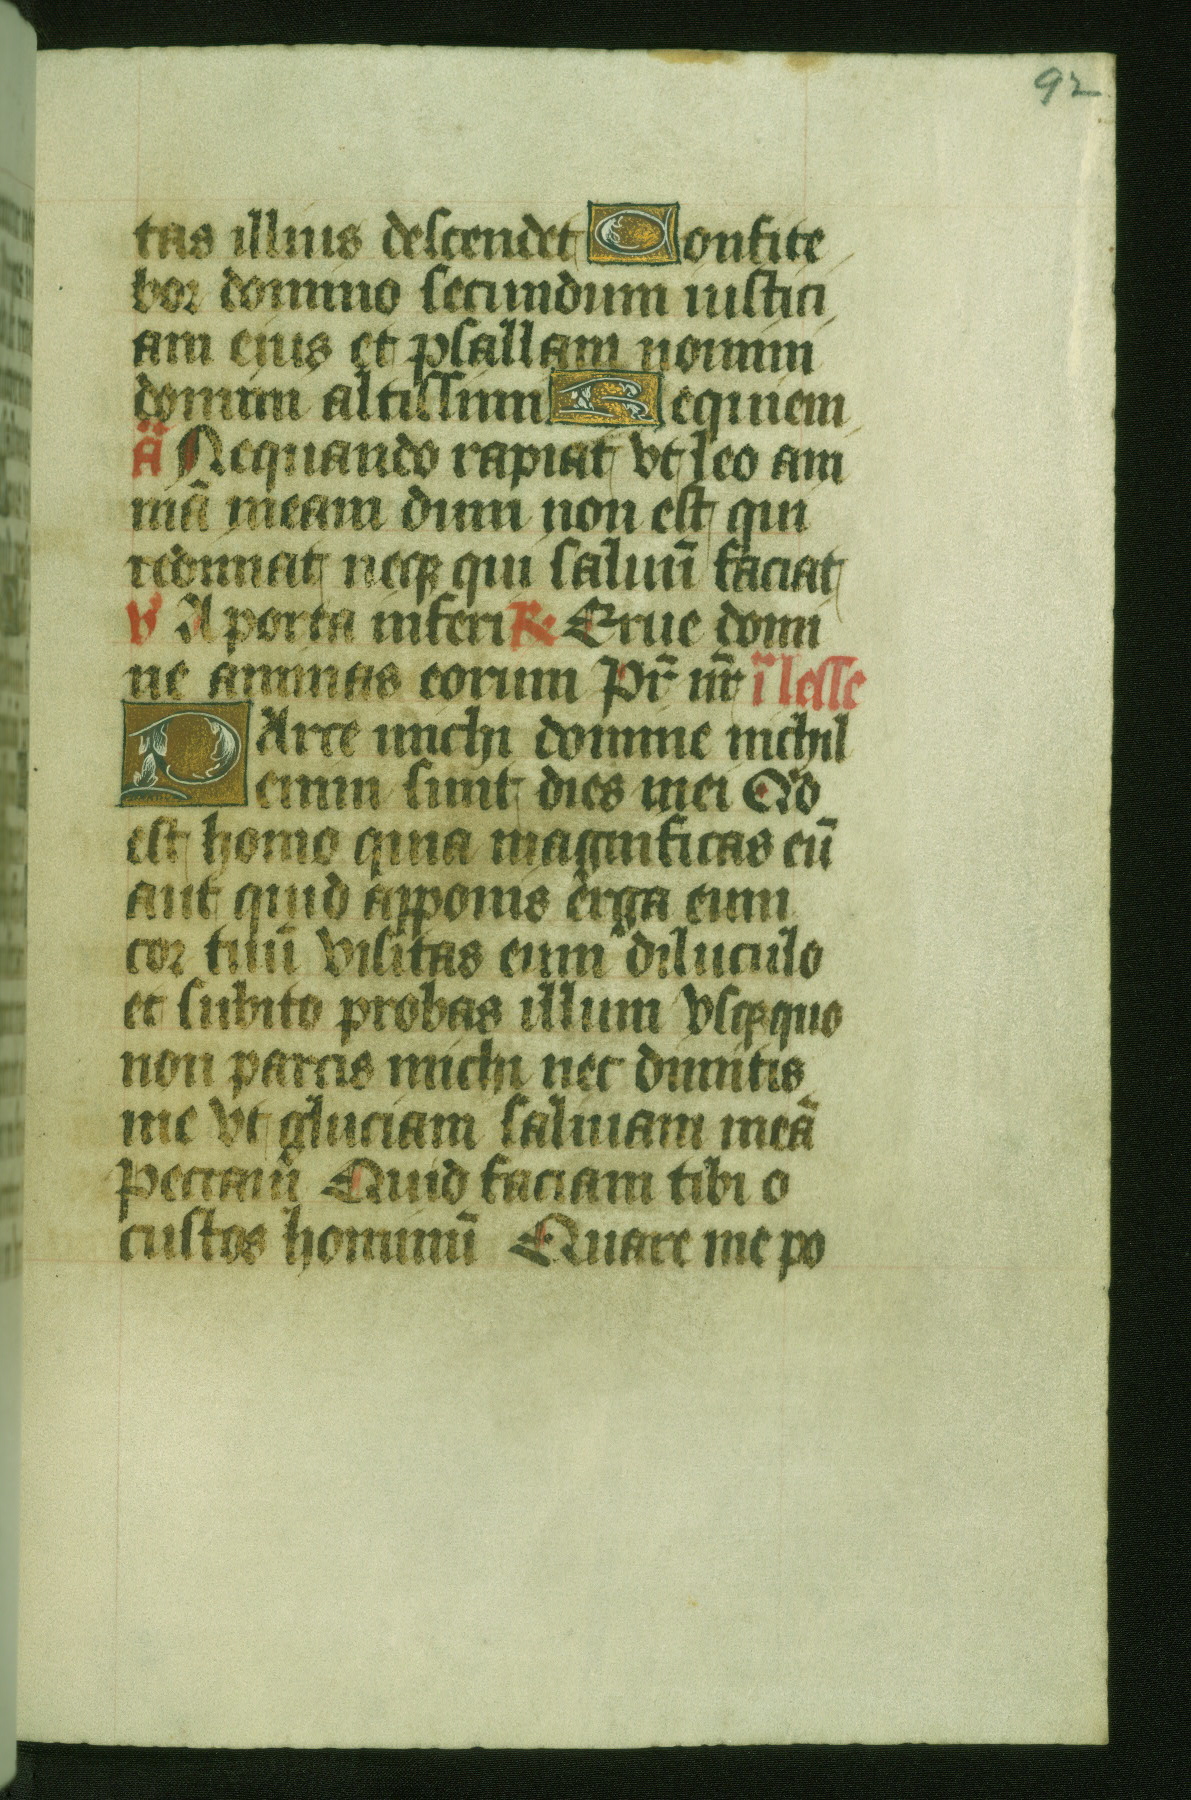 92
tas illius descendet Confite
bor domino secundum iustici
am eius et psallam nomini
domini altissimi Requiem
añ Nequando rapiat vt leo ani
mā meam dum non est qui
redimat neqꝫ qui saluū faciat
v̾ A porta inferi ℟ Erue domi
ne animas eorum Pr̄ nr̄ i lesse
PArce michi domine nichil
enim sunt dies mei Qd
est homo quia magnificas eū
aut quid apponis erga eum
cor tuū visitas eum diluculo
et subito probas illum vsqꝫquo
non parcis michi nec dimitis
me vt gluciam saliuam meā
peccaui Quid faciam tibi o
custos hominū Quare me po